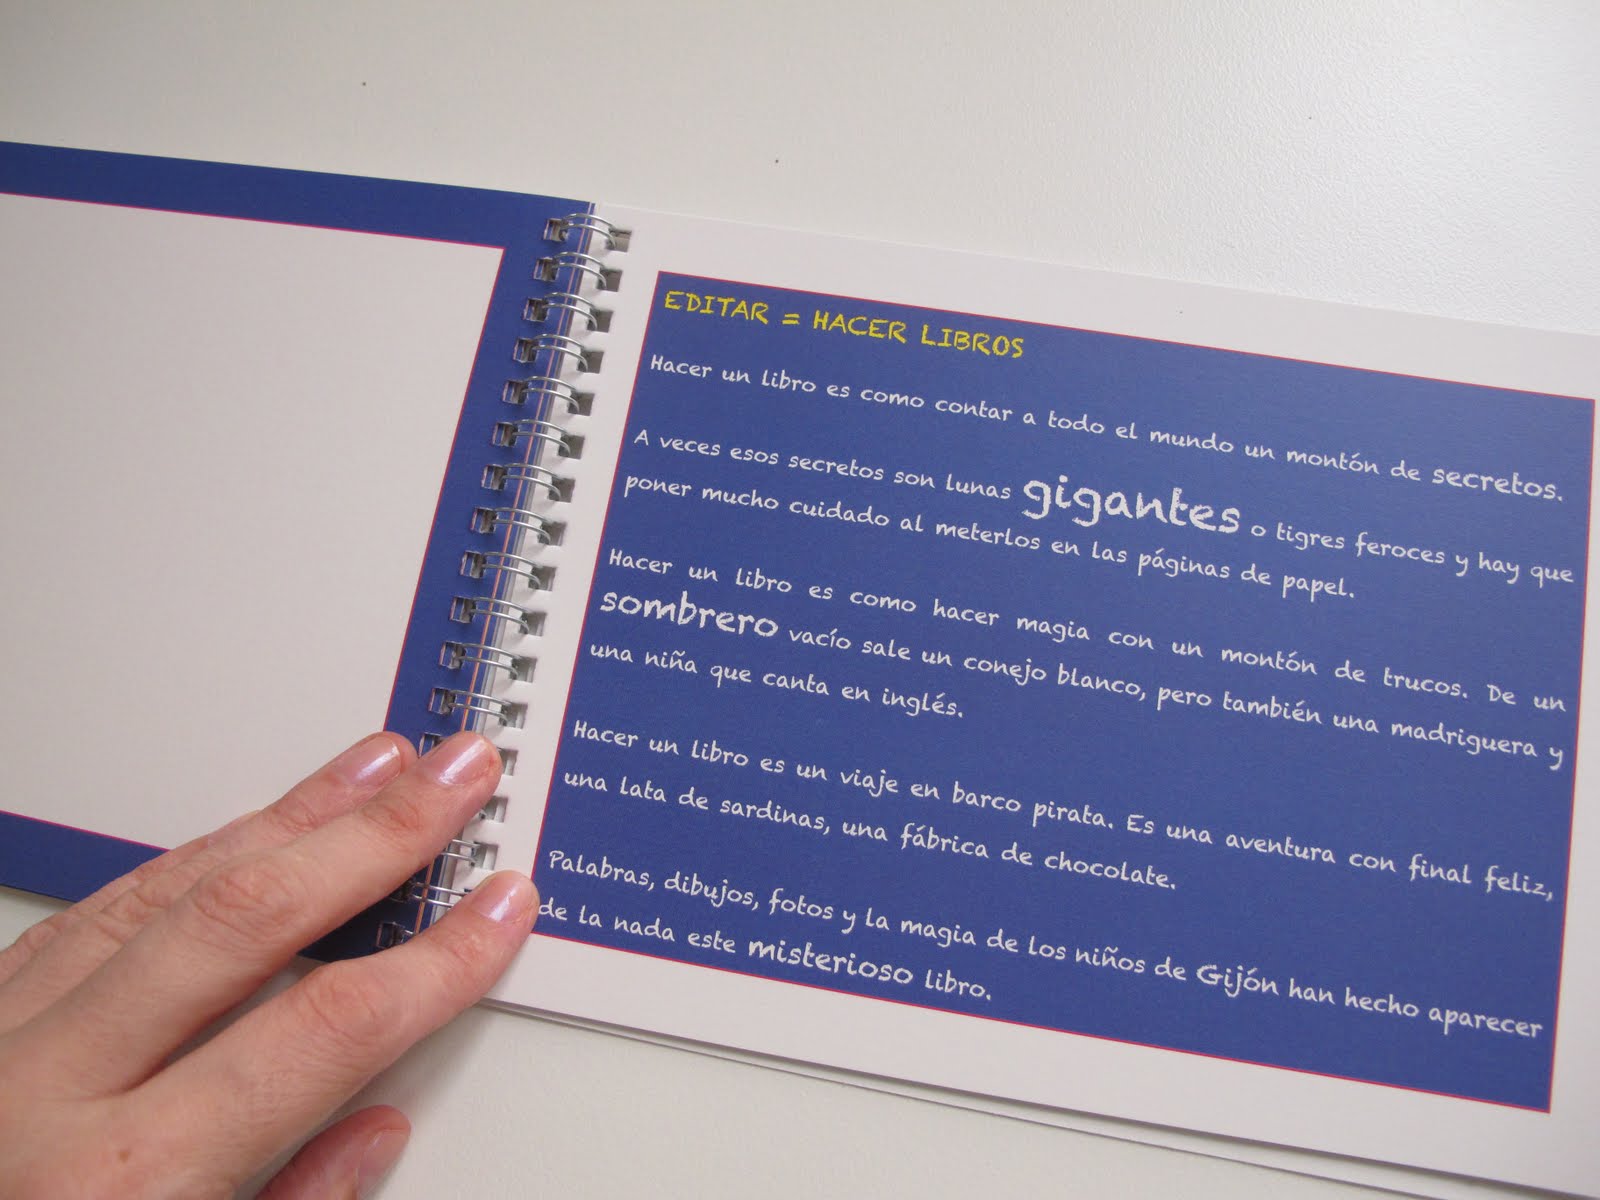 EDITAR = HACER LIBROS
Hacer un libro es como contar a todo el mundo un montón de secretos.
A veces esos secretos son lunas gigantes o tigres feroces y hay que
poner mucho cuidado al meterlos en las páginas de papel.
Hacer un libro es como hacer magia con un montón de trucos. De un
sombrero vacío sale un conejo blanco, pero también una madriguera y
una niña que canta en inglés.
Hacer un libro es un viaje en barco pirata. Es una aventura con final feliz,
una lata de sardinas, una fábrica de chocolate.
Palabras, dibujos, fotos y la magia de los niños de Gijón han hecho aparecer
de la nada este misterioso libro.